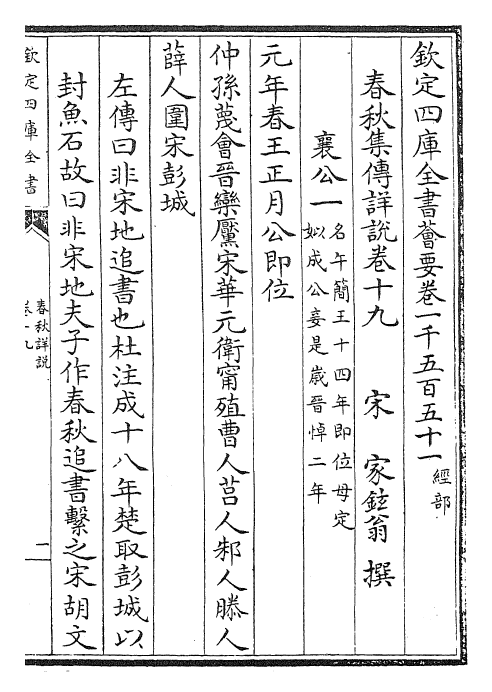 欽定四庫全書薈要卷一千五百五十一 經部
春秋集傳詳說卷十九 宋 家鉉翁 撰
襄公一 名午簡王十四年即位母定
姒成公妾是嵗晉悼二年
元年春王正月公即位
仲孫蔑會晉欒黶宋華元衛甯殖曹人莒人邾人滕人
薛人圍宋彭城
左傳曰非宋地追書也杜注成十八年楚取彭城以
封魚石故曰非宋地夫子作春秋追書繫之宋胡文
欽定四庫全書
春秋詳說
卷十九
一